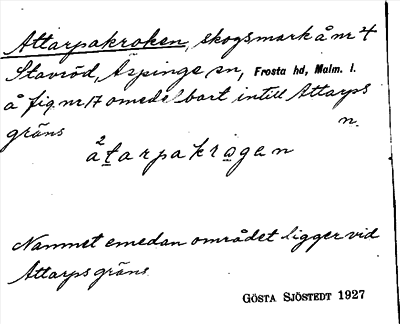 Attarpakroken, skogsmark å nr 4
Stavröd, Äspinge sn, Frosta hd, Malm. l.
å fig. nr 17 omedelbart intill Attarps
gräns n.
2
atarpakragen
Namnet emedan området ligger vid
Attarps gräns.
GÖSTA SJÖSTEDT 1927